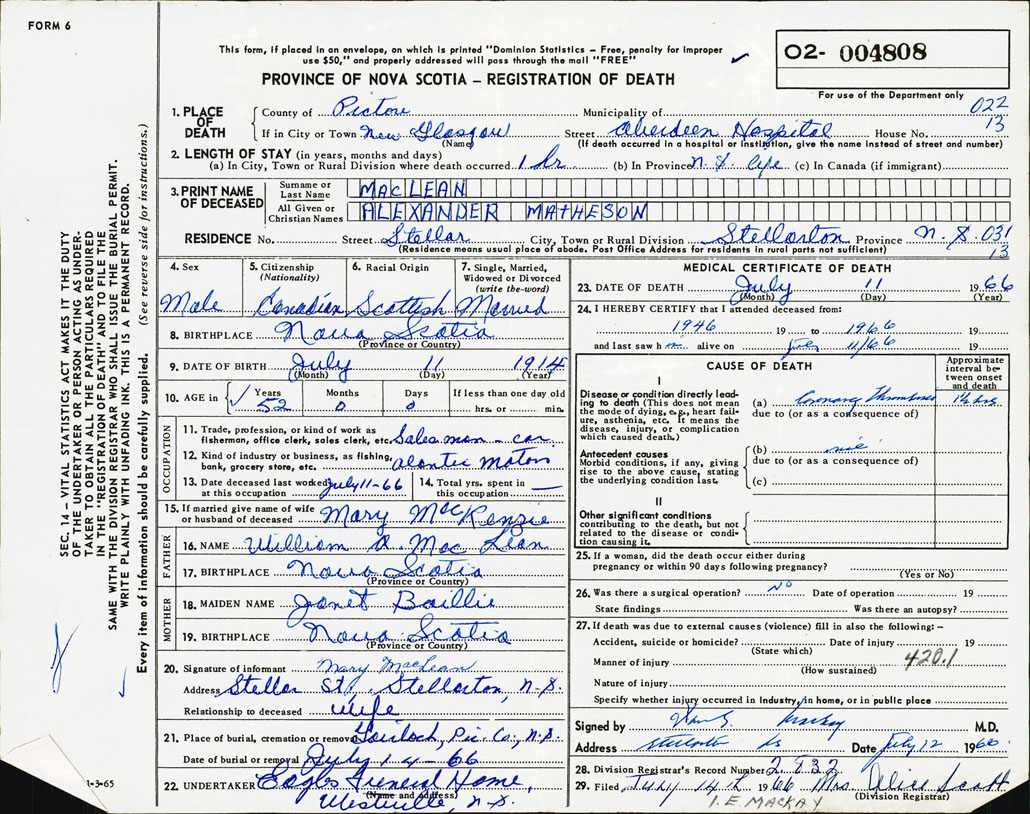 FORM 6
This form, if placed in an envelope, on which is printed "Dominion Statistics – Free, penalty for improper
use $50," and properly addressed will pass through the mail "FREE"
PROVINCE OF NOVA SCOTIA – REGISTRATION OF DEATH
02- 004808
For use of the Department only
SEC. 14 – VITAL STATISTICS ACT MAKES IT THE DUTY
OF THE UNDERTAKER OR PERSON ACTING AS UNDER-
TAKER TO OBTAIN ALL THE PARTICULARS REQUIRED
IN THE "REGISTRATION OF DEATH" AND TO FILE THE
SAME WITH THE DIVISION REGISTRAR WHO SHALL ISSUE THE BURIAL PERMIT.
WRITE PLAINLY WITH UNFADING INK. THIS IS A PERMANENT RECORD.
Every item of information should be carefully supplied. (See reverse side for instructions.)
1. PLACE OF DEATH
County of Pictou Municipality of 022
If in City or Town New Glasgow Street Aberdeen Hospital House No. 13
(Name) (If death occurred in a hospital or institution, give the name instead of street and number)
2. LENGTH OF STAY (in years, months and days)
(a) In City, Town or Rural Division where death occurred 1 hr (b) In Province N.S. life (c) In Canada (if immigrant)
3. PRINT NAME OF DECEASED
Surname or Last Name MACLEAN
All Given or Christian Names ALEXANDER MATHESON
RESIDENCE No. Street Stellar City, Town or Rural Division Stellarton Province N.S. 031
(Residence means usual place of abode. Post Office Address for residents in rural parts not sufficient) 13
4. Sex
Male
5. Citizenship (Nationality)
Canadian
6. Racial Origin
Scottish
7. Single, Married, Widowed or Divorced (write the word)
Married
8. BIRTHPLACE Nova Scotia
(Province or Country)
9. DATE OF BIRTH July 11 1914
(Month) (Day) (Year)
10. AGE in Years Months Days If less than one day old
52 0 0 hrs. or min.
OCCUPATION
11. Trade, profession, or kind of work as
fisherman, office clerk, sales clerk, etc. Salesman – car
12. Kind of industry or business, as fishing,
bank, grocery store, etc. Alantic Motors
13. Date deceased last worked at this occupation July 11-66
14. Total yrs. spent in this occupation —
15. If married give name of wife
or husband of deceased Mary MacKenzie
FATHER
16. NAME William A. MacLean
17. BIRTHPLACE Nova Scotia
(Province or Country)
MOTHER
18. MAIDEN NAME Janet Baillie
19. BIRTHPLACE Nova Scotia
(Province or Country)
20. Signature of informant Mary MacLean
Address Stellar St., Stellarton, N.S.
Relationship to deceased Wife
21. Place of burial, cremation or removal Gairloch, Pic. Co., N.S.
Date of burial or removal July 14-66
22. UNDERTAKER Eagles Funeral Home,
(Name and address)
Westville, N.S.
1-3-65
MEDICAL CERTIFICATE OF DEATH
23. DATE OF DEATH July 11 1966
(Month) (Day) (Year)
24. I HEREBY CERTIFY that I attended deceased from:
1946 19 to 1966 19
and last saw h im alive on July 11/66 19
CAUSE OF DEATH
Approximate interval between onset and death
I
Disease or condition directly lead-
ing to death (This does not mean
the mode of dying, e.g., heart fail-
ure, asthenia, etc. It means the
disease, injury, or complication
which caused death.)
(a) Coronary Thrombosis 1½ hrs
due to (or as a consequence of)
Antecedent causes
Morbid conditions, if any, giving
rise to the above cause, stating
the underlying condition last.
(b) nil
due to (or as a consequence of)
(c)
II
Other significant conditions
contributing to the death, but not
related to the disease or condi-
tion causing it.
25. If a woman, did the death occur either during
pregnancy or within 90 days following pregnancy?
(Yes or No)
26. Was there a surgical operation? No Date of operation 19
State findings Was there an autopsy?
27. If death was due to external causes (violence) fill in also the following: –
Accident, suicide or homicide? Date of injury 19
(State which)
Manner of injury 420.1
(How sustained)
Nature of injury
Specify whether injury occurred in Industry, in home, or in public place
Signed by MacKay M.D.
Address Stellarton NS Date July 12 1966
28. Division Registrar's Record Number 2932
29. Filed July 14th 1966 Mrs. Alice Scott
(Division Registrar)
I. E MACKAY